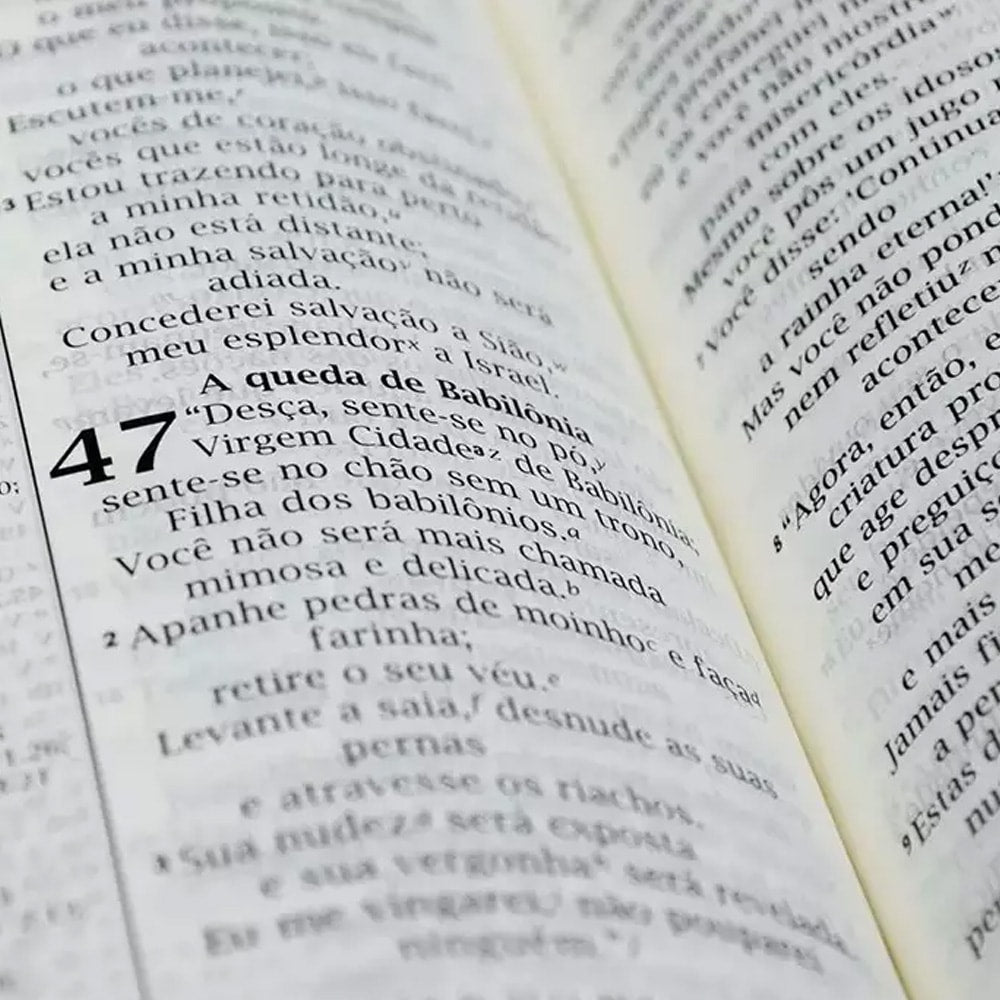 O que eu disse,
acontecer;
o que planejei,
Escutem-me,ʲ
vocês de coração
vocês que estão longe da
13 Estou trazendo para perto
a minha retidão,ᵘ
ela não está distante;
e a minha salvaçãoᵛ não será
adiada.
Concederei salvação a Sião,ʷ
meu esplendorˣ a Israel.
A queda de Babilônia
47 “Desça, sente-se no pó,ʸ
Virgem Cidadeᵃᶻ de Babilônia;
sente-se no chão sem um trono,
Filha dos babilônios.ᵃ
Você não será mais chamada
mimosa e delicada.ᵇ
2 Apanhe pedras de moinhoᶜ e façaᵈ
farinha;
retire o seu véu.ᵉ
Levante a saia,ᶠ desnude as suas
pernas
e atravesse os riachos.
3 Sua nudezᵍ será exposta
e sua vergonhaʰ será revelada.
Eu me vingarei;ⁱ não pouparei
ninguém.”ʲ
e profanei
as entreguei n
e você não mostro
misericórdia
para com eles.
Mesmo sobre os idosos
você pôs um jugo
7 Você disse: ‘Continua
sendo
a rainha eterna!’
Mas você não pond
nem refletiuᶻ n
acontece
8 “Agora, então, e
criatura pro
que age despr
e preguiç
em sua s
e mais
Jamais fi
a per
9 Estas d
nu